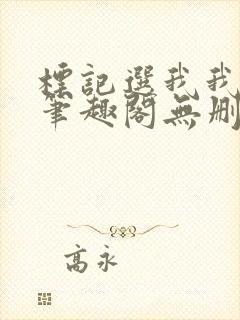 標記選我我
筆趣閣無刪
高永